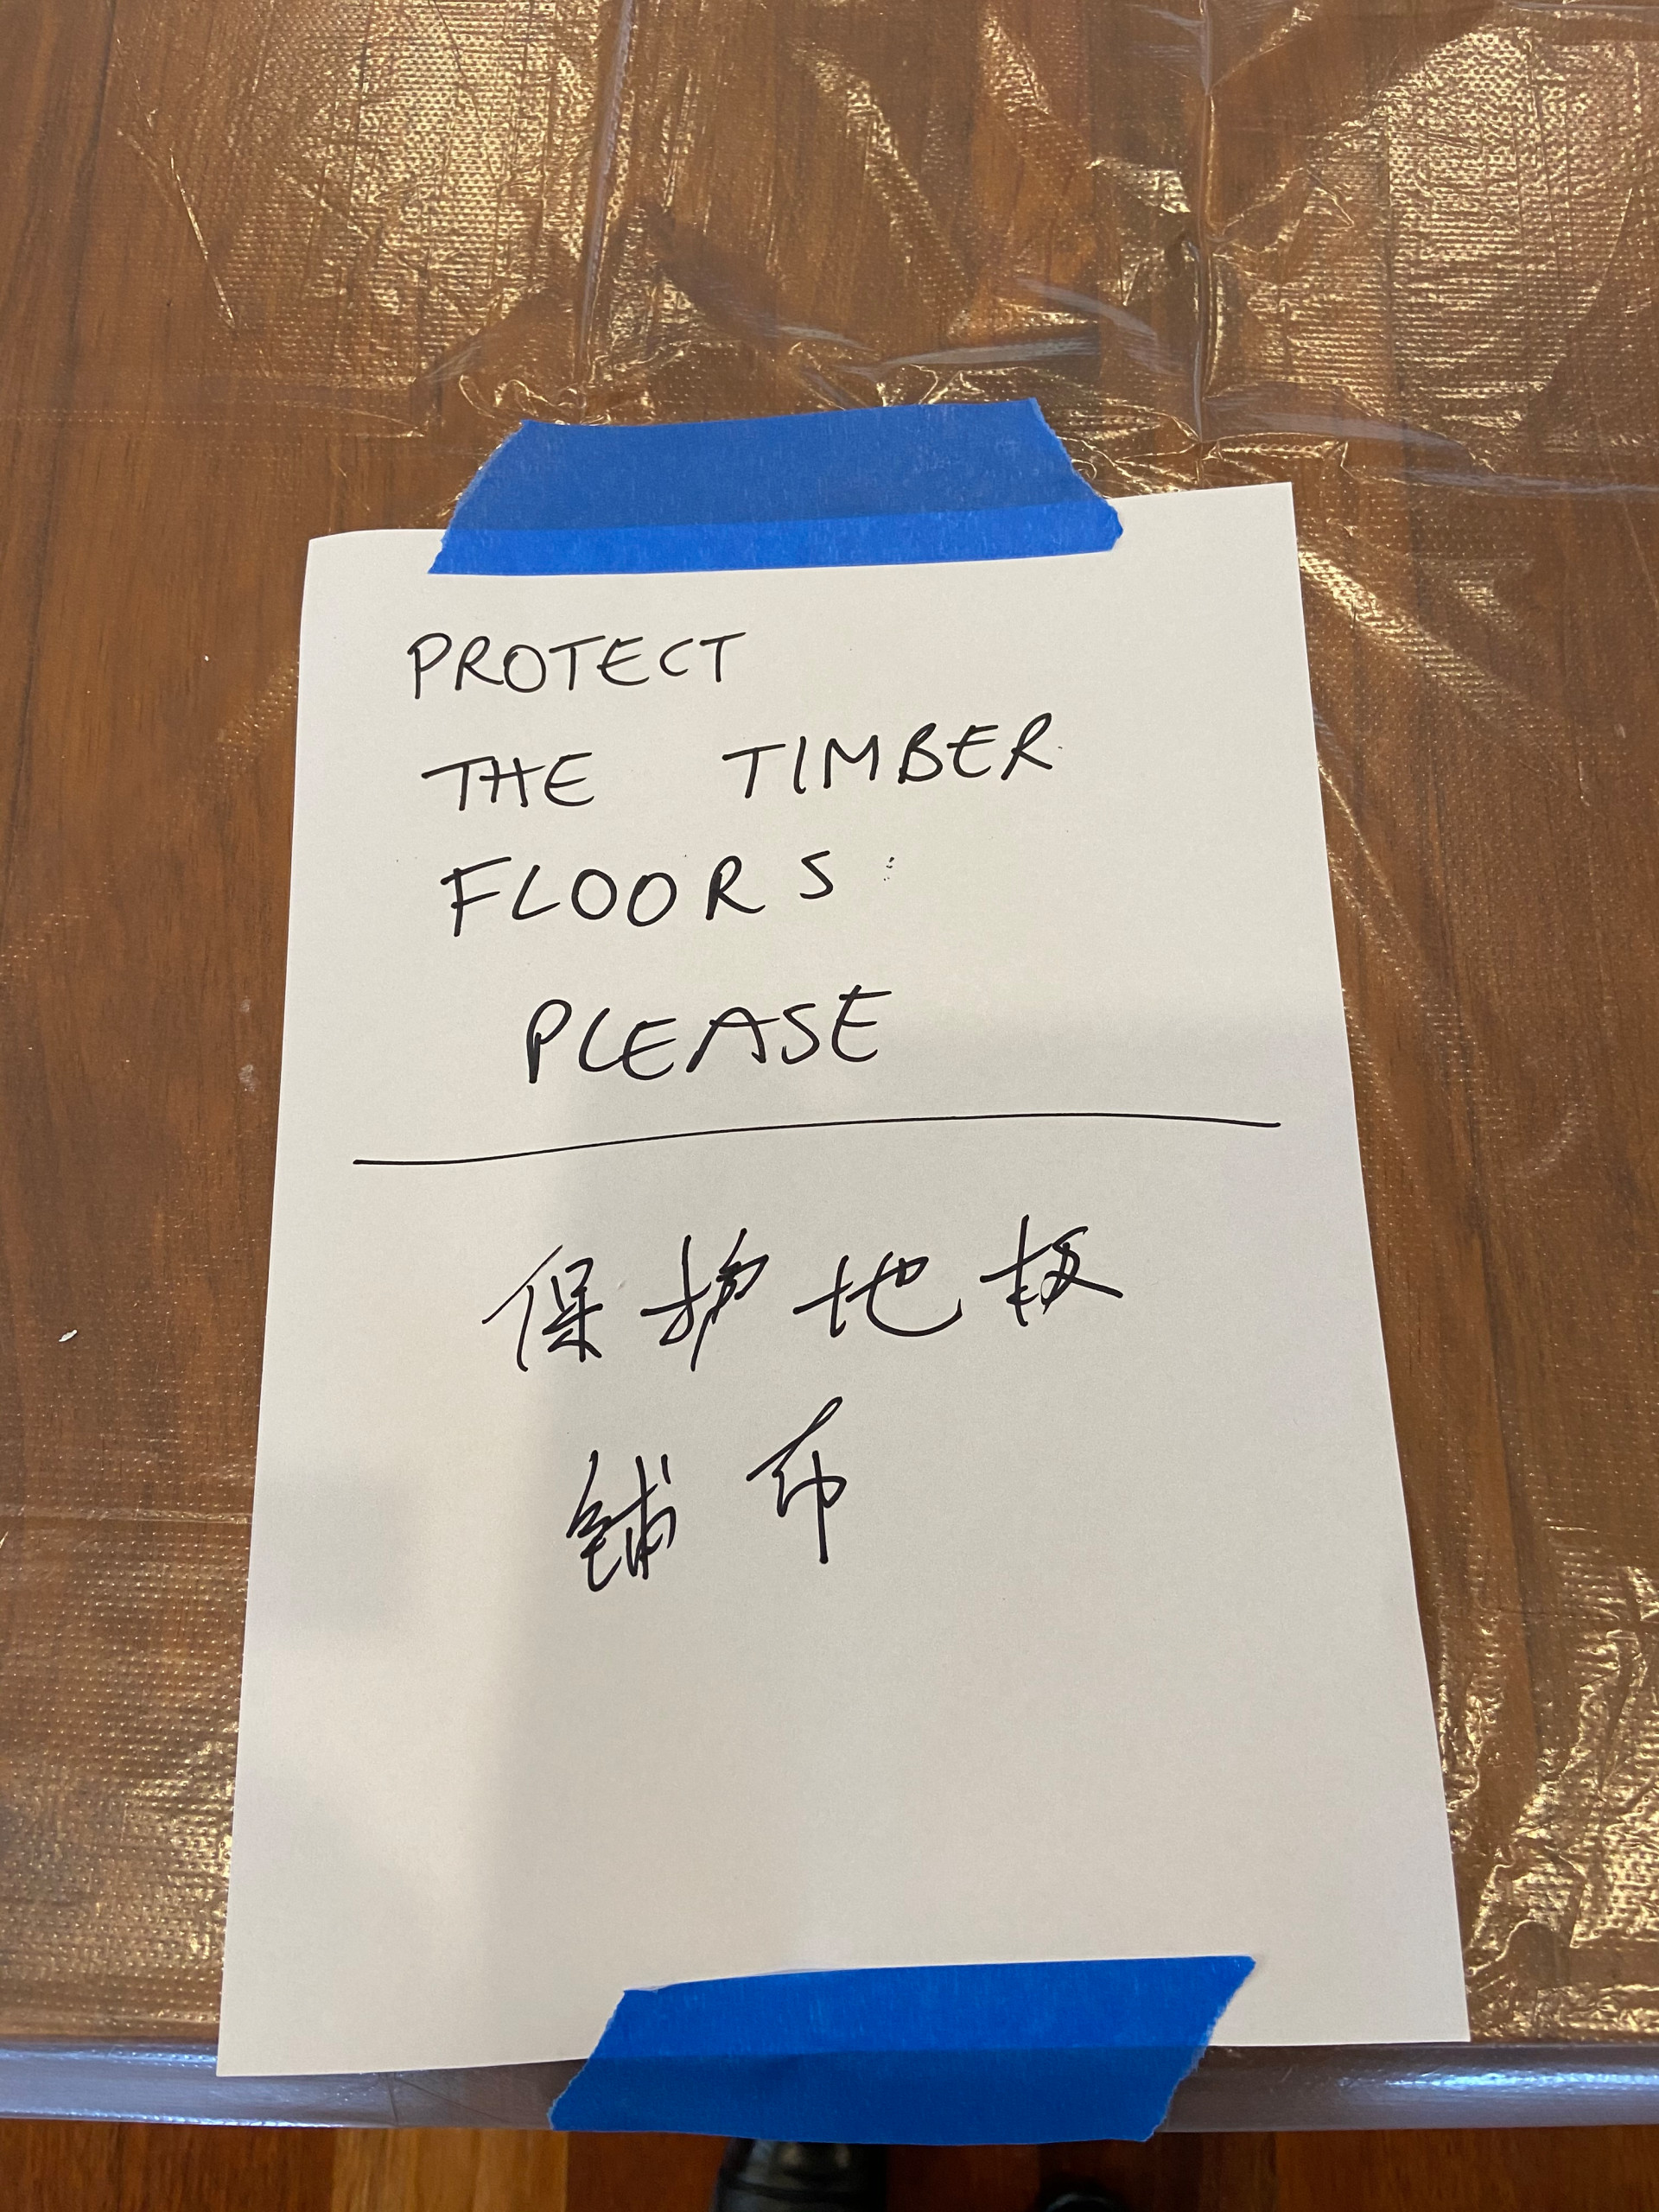 PROTECT
THE TIMBER
FLOORS
PLEASE
保护地板
铺布